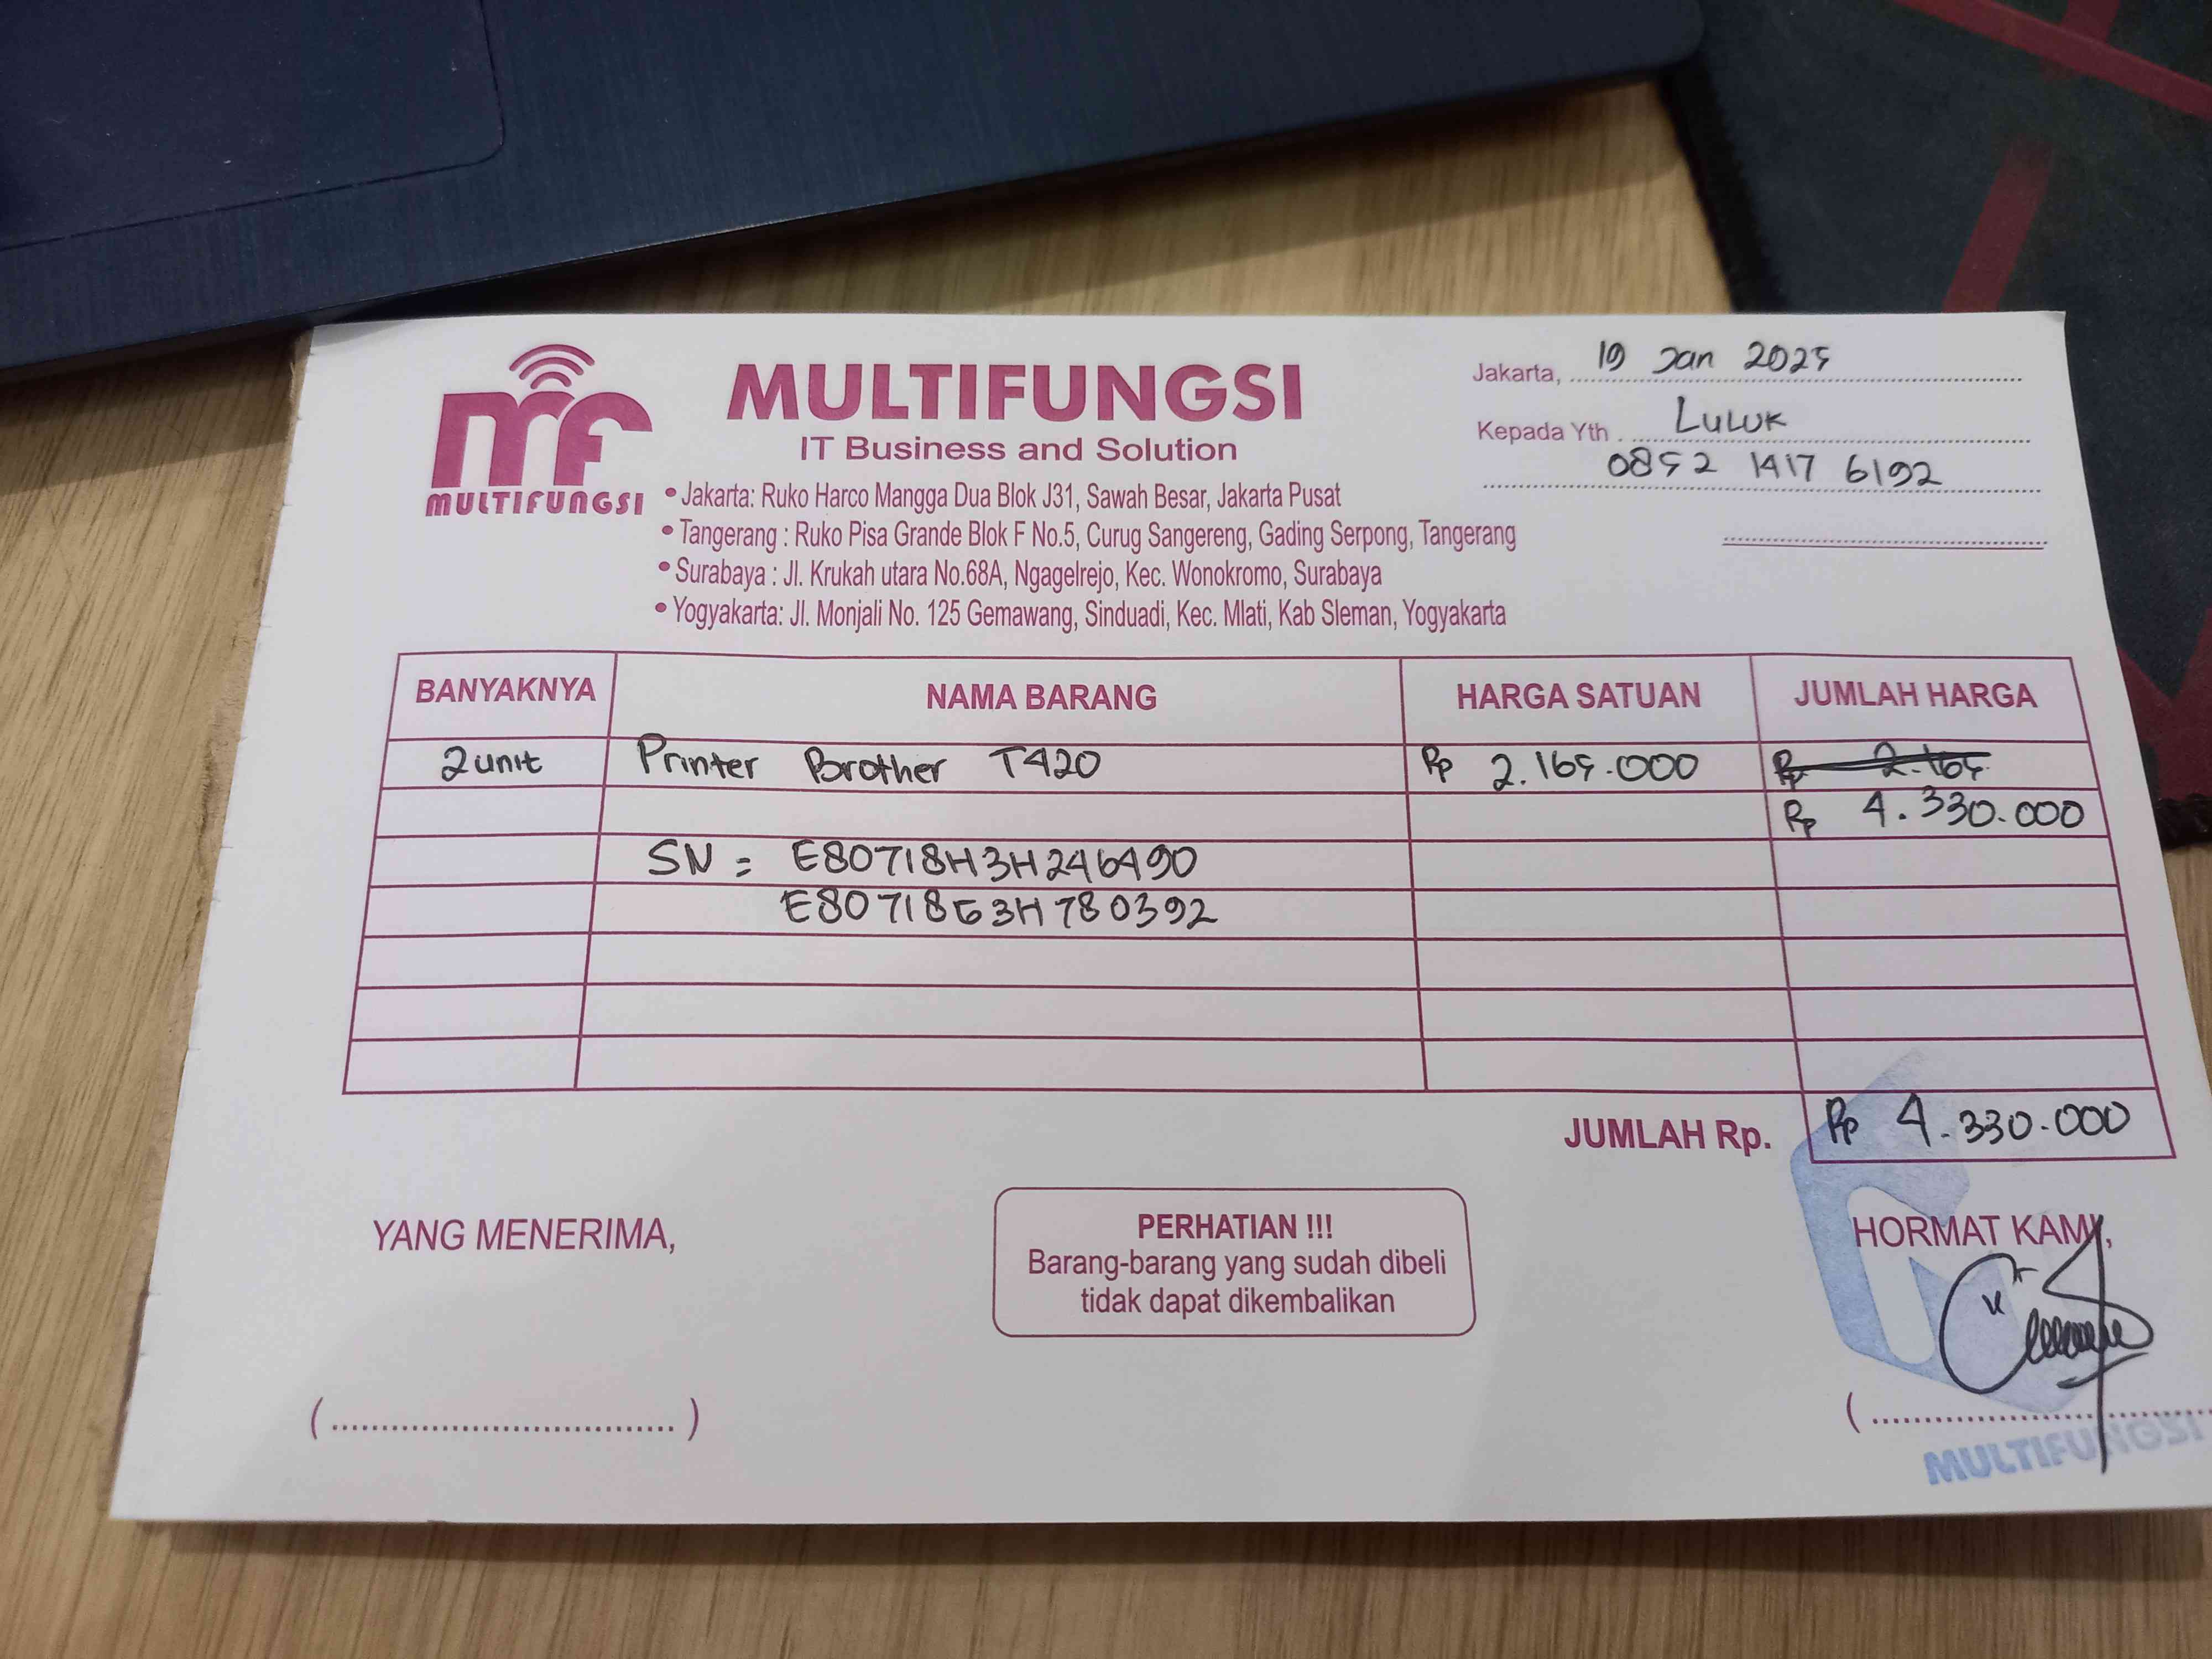 MULTIFUNGSI
MULTIFUNGSI
IT Business and Solution
• Jakarta: Ruko Harco Mangga Dua Blok J31, Sawah Besar, Jakarta Pusat
• Tangerang : Ruko Pisa Grande Blok F No.5, Curug Sangereng, Gading Serpong, Tangerang
• Surabaya : Jl. Krukah utara No.68A, Ngagelrejo, Kec. Wonokromo, Surabaya
• Yogyakarta: Jl. Monjali No. 125 Gemawang, Sinduadi, Kec. Mlati, Kab Sleman, Yogyakarta
Jakarta, 19 Jan 2025
Kepada Yth . Luluk
0852 1417 6192
BANYAKNYA NAMA BARANG HARGA SATUAN JUMLAH HARGA
2 unit Printer Brother T420 Rp 2.165.000 Rp 2.165
Rp 4.330.000
SN = E80718H3H246490
E80718G3H780392
JUMLAH Rp. Rp 4.330.000
YANG MENERIMA,
PERHATIAN !!!
Barang-barang yang sudah dibeli
tidak dapat dikembalikan
HORMAT KAMI,
MULTIFUNGSI